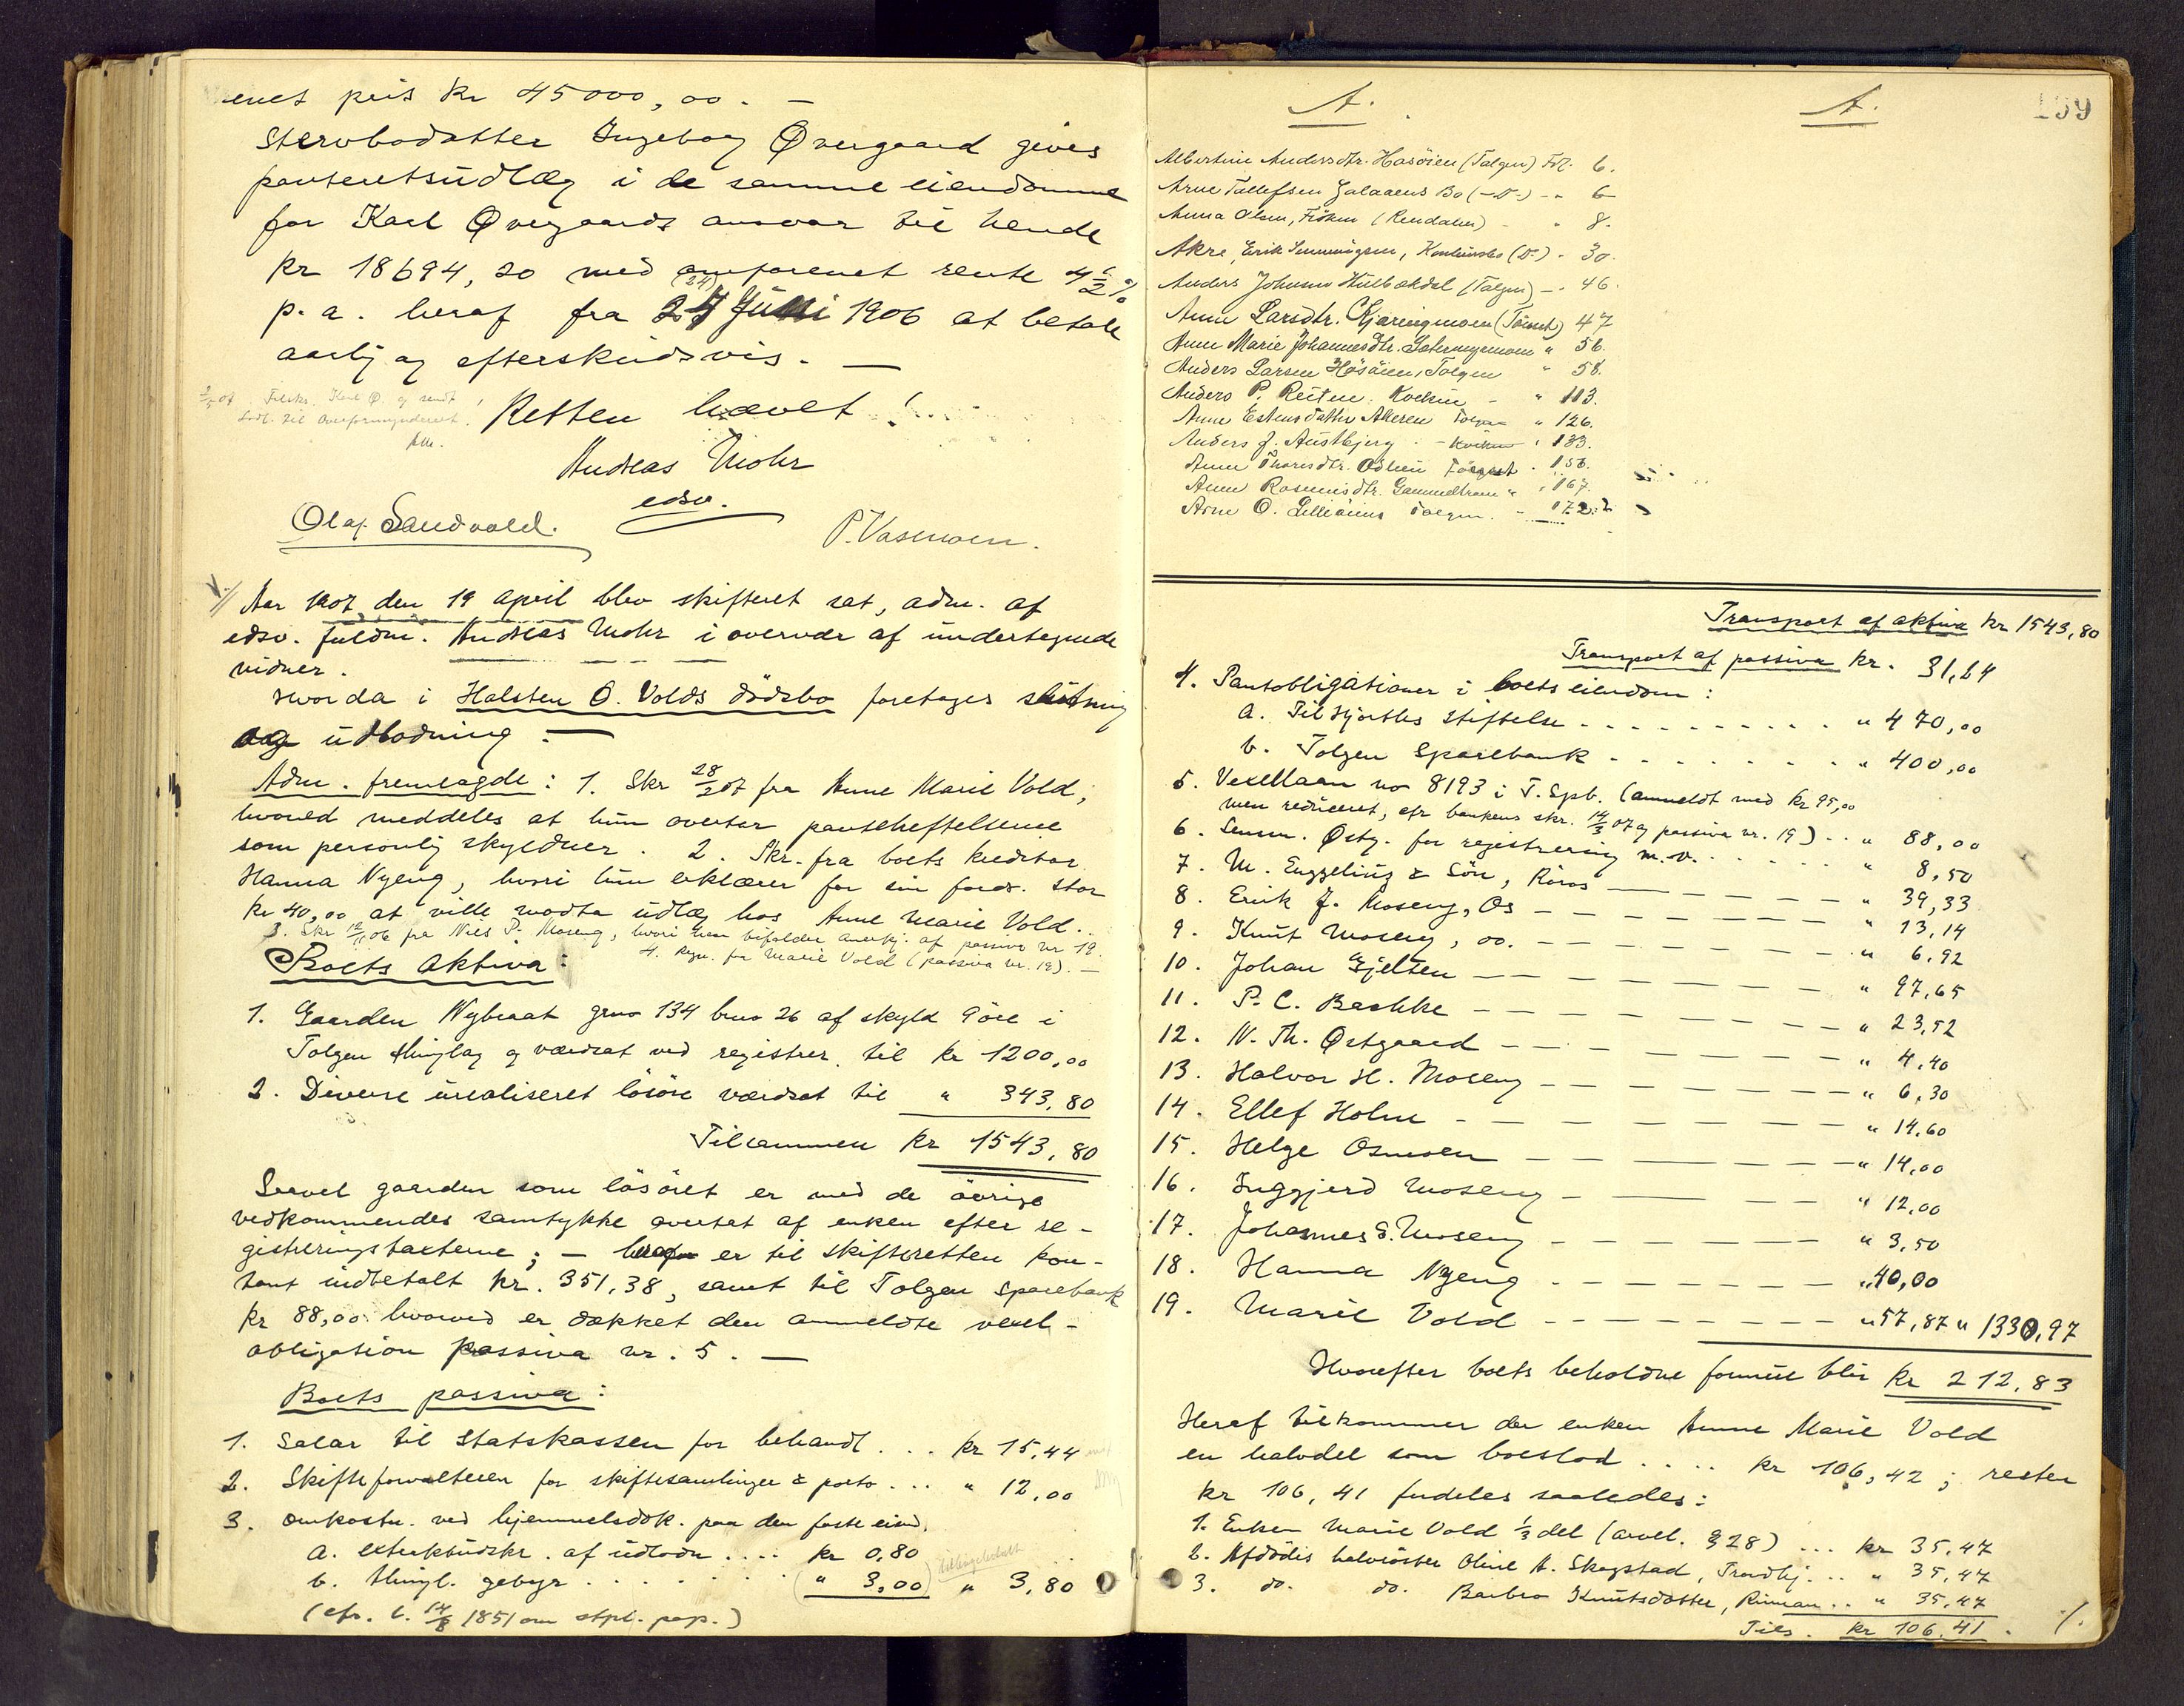 enet pris kr 45000,00. —
Stervbodatter Ingeborg Øvergaard gives
panteretsudlæg i de samme eiendomme
for Karl Øvergaards ansvar til hende
kr 18694,20 med omforenet rente 4 1/2 %
(24)
p. a. heraf fra 24 Juni 1906 at betale
aarlig og efterskudsvis. —
Karl Ø. og sendt
til overformynderiet.
Retten hævet!
Andreas Mohr
edsv.
Olaf Sandvold.
P. Vasmoen.
Aar 1907 den 19 april blev skifteret sat, adm. af
edsv. fuldm. Andreas Mohr i overvær af undertegnede
vidner.
Hvorda i Halsten O. Volds dödsbo foretoges slutning
og udlodning —
Adm. fremlagde: 1. Skr 28/2 07 fra Anne Marie Vold,
hvorved meddeles at hun overtar pantehæftelserne
som personlig skyldner. 2. Skr. fra boets kreditor
Hanna Nyeng, hvori hun erklærer for sin fordr. stor
kr 40,00 at ville modta udlæg hos Anne Marie Vold..
3. Skr 12/11 06 fra Nils P. Moseng, hvori han bifalder anerkj. af passiva nr 19.
4. Regn. fra Marie Vold (passiva nr. 19). —
Boets Aktiva:
1. Gaarden Nybraat gno 134 bno 26 af skyld 9 öre i
Tolgen thinglag og værdsat ved registrer. til kr 1200,00
2. Diverse urealiseret lösöre værdsat til " 343,80
Tilsammen kr 1543,80
Saavel gaarden som lösöret er med de övrige
vedkommendes samtykke overtat af enken efter re-
gistreringstaxterne; — heraf er til skifteretten kon-
tant indbetalt kr. 351,38, samt til Tolgen Sparebank
kr 88,00 hvorved er dækket den anmeldte vexel-
obligation passiva nr. 5. —
Boets passiva:
1. Salær til Statskassen for behandl. .. kr 15,44
2. Skifteforvalteren for skiftesamlinger & porto ... " 12,00
3. Omkostn. ved hjemmelsdok. paa den faste eiend.
a. extraktudskr. af udlodn .... kr 0,80
b. thingl. gebyr . . . . . . (" 3,00) " 3,80
(cfr. l. 14/8 1851 om stpl. pap.)
A. A. 159
Albertine Andersdtr. Hasöien (Tolgen) Fol. 6.
Arne Tollefsen Galaaens Bo (—D—) -" 6
Anna Olsen, Fisken (Rendalen) - " 8.
Akre, Erik Semmingsen, (D.) - 30.
Anders Johnsen Hulbækdal (Tolgen) — " 46.
Anne Larsdtr. Kjæringmoen (Tönset) 47
Anne Marie Johannesdtr. " 56.
Anders Larsen Hösöien, Tolgen " 58.
Anders P. Reiten Kvikne - " 113.
Anne Estensdatter Akeren Tolgen " 126.
Anders J. Austbjerg - Kvikne " 133.
Anne Thoresdtr. Odlien . 156.
Anne Rasmusdtr. Gammeltrøen " " 167.
Arne O. Lilleöiens Tolgen. - 172.
Transport af aktiva kr 1543,80
Transport af passiva kr. 31,24
4. Pantobligationer i boets eiendom:
a. Til Hjorths Stiftelse . . . . . . . . . " 470,00
b. Tolgen Sparebank . . . . . . . . " 400,00
5. Vexellaan no 8193 i T. Spb. (anmeldt med kr 95,00
men reduceret, cfr bankens skr. 14/3 07 og passiva nr. 19) .. " 88,00
6. Lensm. Østg. for registrering m. v. . . . . . . " 8,50
7. M. Engzelius & Sön, Röros — — — — " 39,33
8. Erik J. Moseng, Os — — — — — " 13,14
9. Knut Moseng, do. — — — — — " 6,92
10. Johan Gjelten — — — — — — " 97,65
11. P. C. Baschke — — — — — — " 23,52
12. N. Th. Østgaard — — — — — " 4,40
13. Halvor H. Moseng — — — — — " 6,30
14. Ellef Holm — — — — — — " 14,60
15. Helge Osmoen — — — — — — " 14,00
16. Inggjerd Moseng — — — — — " 12,00
17. Johannes E. Moseng — — — — — " 3,50
18. Hanna Nyeng — — — — — " 40,00
19. Marie Vold — — — — — — " 57,87 " 1330,97
Hvorefter boets beholdne formue blir kr 212,83
Heraf tilkommer der enken Anne Marie Vold
en halvdel som boeslod .... kr 106,42; resten
kr 106,41 fordeles saaledes:
1. Enken Marie Vold 1/3 del (arvel. § 28) ... kr 35,47
2. Afdödes halvsöster Oline H. Skogstad, Trondhj. .. " 35,47
3. do. do. Barbro Knutsdatter, .. " 35,47
Tils. kr 106,41. ./.